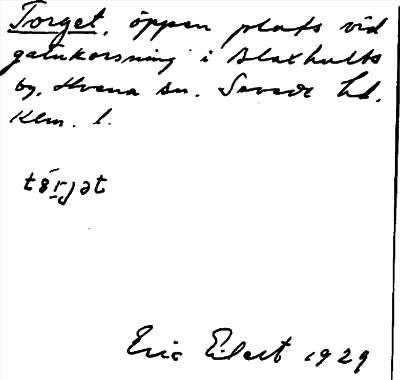 Torget, öppen plats vid
gatukorsning i Blaxhults
by, Hvena sn. Sevede hd.
Klm. l.
tórjət
Eric Eilert 1929